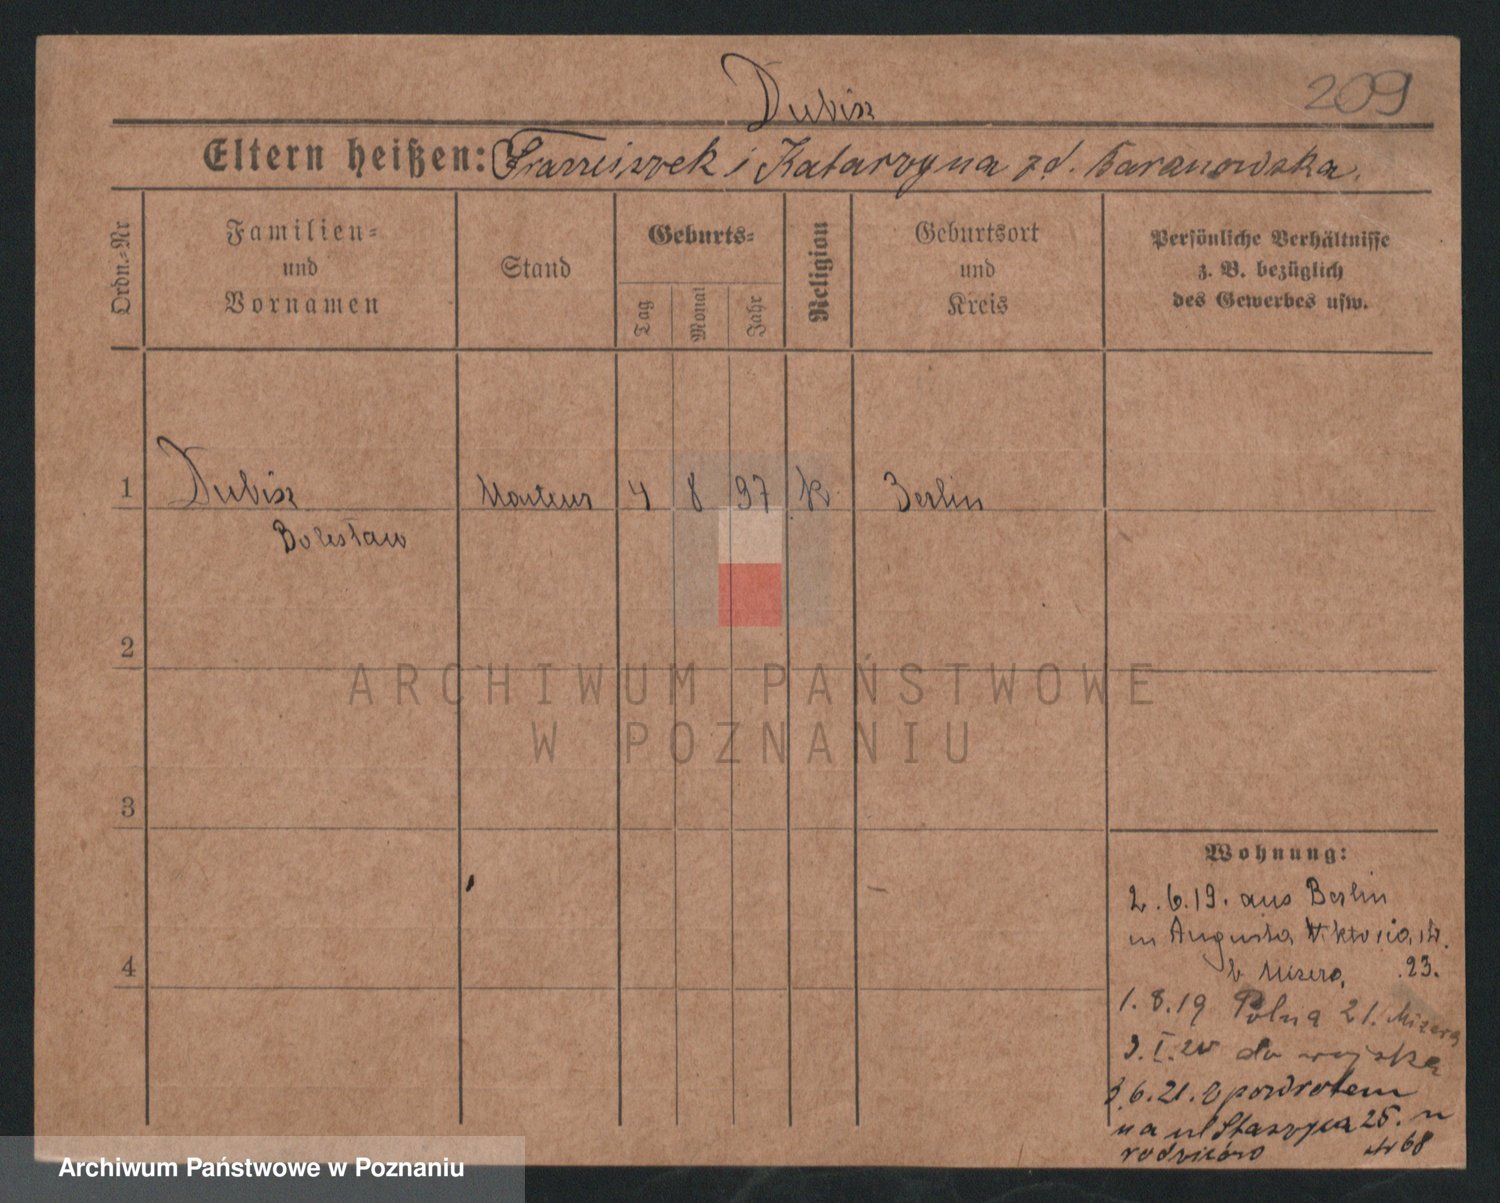 Dubisz
209
Eltern heißen: Franciszek i Katarzyna zd. Baranowska.
Ordn.-Nr
Familien-
und
Vornamen
Stand
Geburts-
Tag
Monat
Jahr
Religion
Geburtsort
und
Kreis
Persönliche Verhältnisse
z. B. bezüglich
des Gewerbes usw.
1 Dubisz Monteur 4 8 97 k Berlin
Bolesław
2
3
4
ARCHIWUM PAŃSTWOWE
W POZNANIU
Wohnung:
2.6.19. aus Berlin
n Augusta Viktoria str.
b Mizera, 23.
1.8.19 Polna 21. Mizera
I.20 do wojska
6.21. z powrotem
na ul Staszyca 25. u
rodziców str 68
Archiwum Państwowe w Poznaniu